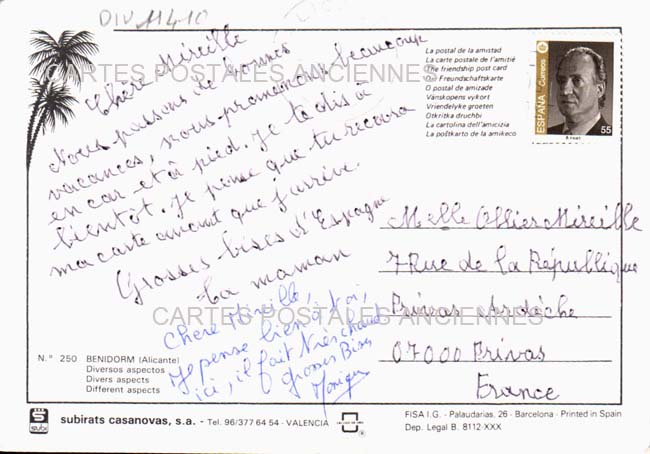 DIV11410
CARTES POSTALES ANCIENNES
Chère Mireille
Nous passons de bonnes
vacances, nous promenons beaucoup
en car et à pied. Je te dis à
bientôt. Je pense que tu recevra
ma carte avant que j'arrive.
Grosses bises d'Espagne
ta maman
Chère Mireille,
Je pense bientôt toi,
ici, il fait très chaud
Grosses Bises
Monique
La postal de la amistad
La carte postale de l'amitié
The friendship post card
Die Freundschaftskarte
O postal de amizade
Vänskopens vykort
Vriendelyke groeten
Otkritka druchbi
La cartolina dell'amicizia
La poŝtkarto de la amikeco
ESPAÑA Correos
55
Melle Ollier Mireille
7 Rue de la République
Privas Ardèche
07000 Privas
France
CARTES POSTALES ANCIENNES
N.º 250 BENIDORM (Alicante)
Diversos aspectos
Divers aspects
Different aspects
subi
subirats casanovas, s.a. - Tel. 96/377 64 54 - VALENCIA
FISA I.G. - Palaudarias, 26 - Barcelona - Printed in Spain
Dep. Legal B. 8112-XXX